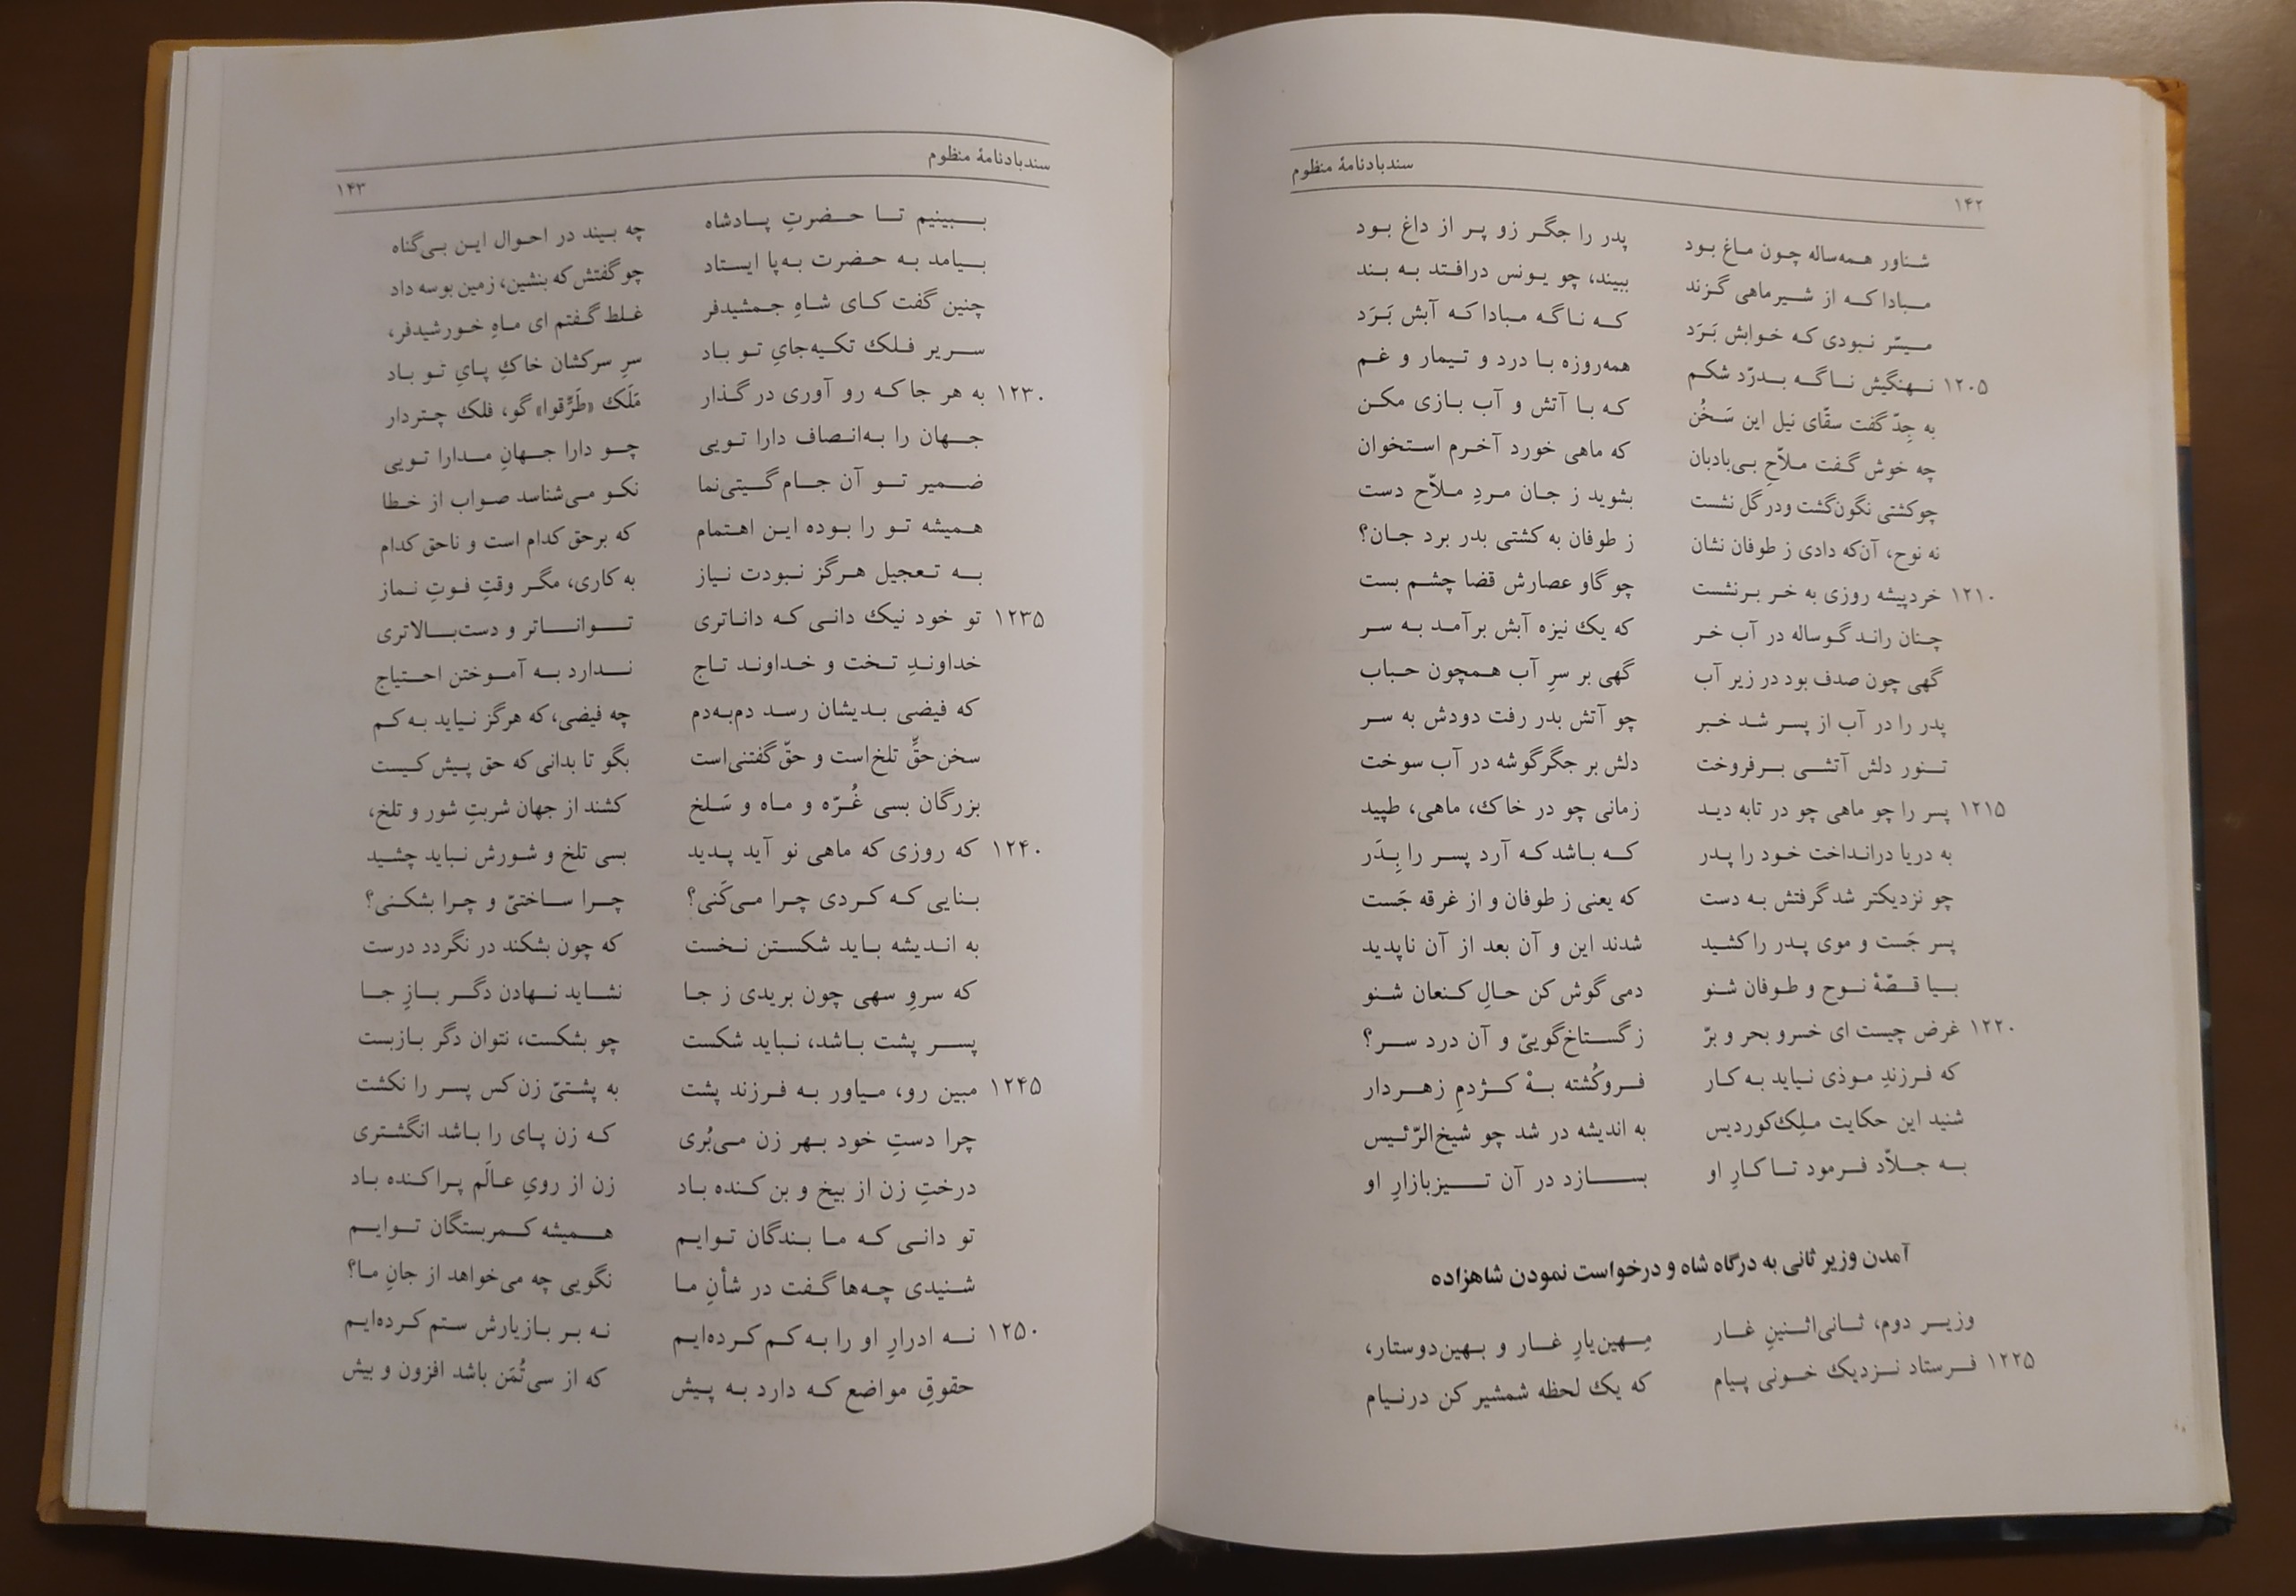 ۱۴۲ سندبادنامهٔ منظوم
شناور همه‌ساله چون ماغ بود پدر را جگر زو پر از داغ بود
مبادا که از شیرماهی گزند ببیند، چو یونس درافتد به بند
میسّر نبودی که خوابش بَرَد که ناگه مبادا که آبش بَرَد
۱۲۰۵ نهنگیش ناگه بدرّد شکم همه‌روزه با درد و تیمار و غم
به جِدّ گفت سقّای نیل این سَخُن که با آتش و آب بازی مکن
چه خوش گفت ملاّحِ بی‌بادبان که ماهی خورد آخرم استخوان
چو کشتی نگون‌گشت و در گل نشست بشوید ز جان مردِ ملاّح دست
نه نوح، آن‌که دادی ز طوفان نشان ز طوفان به کشتی بدر برد جان؟
۱۲۱۰ خردپیشه روزی به خر برنشست چو گاو عصارش قضا چشم بست
چنان راند گوساله در آب خر که یک نیزه آبش برآمد به سر
گهی چون صدف بود در زیر آب گهی بر سرِ آب همچون حباب
پدر را در آب از پسر شد خبر چو آتش بدر رفت دودش به سر
تنور دلش آتشی برفروخت دلش بر جگرگوشه در آب سوخت
۱۲۱۵ پسر را چو ماهی چو در تابه دید زمانی چو در خاک، ماهی، طپید
به دریا درانداخت خود را پدر که باشد که آرد پسر را بِدَر
چو نزدیکتر شد گرفتش به دست که یعنی ز طوفان و از غرقه جَست
پسر جَست و موی پدر را کشید شدند این و آن بعد از آن ناپدید
بیا قصّهٔ نوح و طوفان شنو دمی گوش کن حالِ کنعان شنو
۱۲۲۰ غرض چیست ای خسرو بحر و برّ ز گستاخ‌گوییّ و آن درد سر؟
که فرزندِ موذی نیاید به کار فروکُشته بهْ کژدمِ زهردار
شنید این حکایت ملِک‌کوردیس به اندیشه در شد چو شیخ‌الرّئیس
به جلاّد فرمود تا کارِ او بسازد در آن تیزبازارِ او
آمدن وزیر ثانی به درگاه شاه و درخواست نمودن شاهزاده
وزیر دوم، ثانی‌اثنینِ غار مِهین‌یارِ غار و بهین‌دوستار،
۱۲۲۵ فرستاد نزدیک خونی پیام که یک لحظه شمشیر کن در نیام
سندبادنامهٔ منظوم ۱۴۳
ببینیم تا حضرتِ پادشاه چه بیند در احوال این بی‌گناه
بیامد به حضرت به‌پا ایستاد چو گفتش که بنشین، زمین بوسه داد
چنین گفت کای شاهِ جمشیدفر غلط گفتم ای ماهِ خورشیدفر،
سریر فلک تکیه‌جایِ تو باد سرِ سرکشان خاکِ پایِ تو باد
۱۲۳۰ به هر جا که رو آوری در گذار مَلَک «طَرِّقوا» گو، فلک چتردار
جهان را به‌انصاف دارا تویی چو دارا جهانِ مدارا تویی
ضمیر تو آن جام گیتی‌نما نکو می‌شناسد صواب از خطا
همیشه تو را بوده این اهتمام که برحق کدام است و ناحق کدام
به تعجیل هرگز نبودت نیاز به کاری، مگر وقتِ فوتِ نماز
۱۲۳۵ تو خود نیک دانی که داناتری تواناتر و دست‌بالاتری
خداوندِ تخت و خداوند تاج ندارد به آموختن احتیاج
که فیضی بدیشان رسد دم‌به‌دم چه فیضی، که هرگز نیاید به کم
سخن حقِّ تلخ‌است و حقّ گفتنی‌است بگو تا بدانی که حق پیش کیست
بزرگان بسی غُرّه و ماه و سَلخ کشند از جهان شربتِ شور و تلخ،
۱۲۴۰ که روزی که ماهی نو آید پدید بسی تلخ و شورش نباید چشید
بنایی که کردی چرا می‌کَنی؟ چرا ساختیّ و چرا بشکنی؟
به اندیشه باید شکستن نخست که چون بشکند در نگردد درست
که سروِ سهی چون بریدی ز جا نشاید نهادن دگر بازِ جا
پسر پشت باشد، نباید شکست چو بشکست، نتوان دگر بازبست
۱۲۴۵ مبین رو، میاور به فرزند پشت به پشتیّ زن کس پسر را نکشت
چرا دستِ خود بهر زن می‌بُری که زن پای را باشد انگشتری
درختِ زن از بیخ و بن کنده باد زن از رویِ عالَم پراکنده باد
تو دانی که ما بندگان توایم همیشه کمربستگان توایم
شنیدی چه‌ها گفت در شأنِ ما نگویی چه می‌خواهد از جانِ ما؟
۱۲۵۰ نه ادرارِ او را به کم کرده‌ایم نه بر بازیارش ستم کرده‌ایم
حقوقِ مواضع که دارد به پیش که از سی تُمَن باشد افزون و بیش